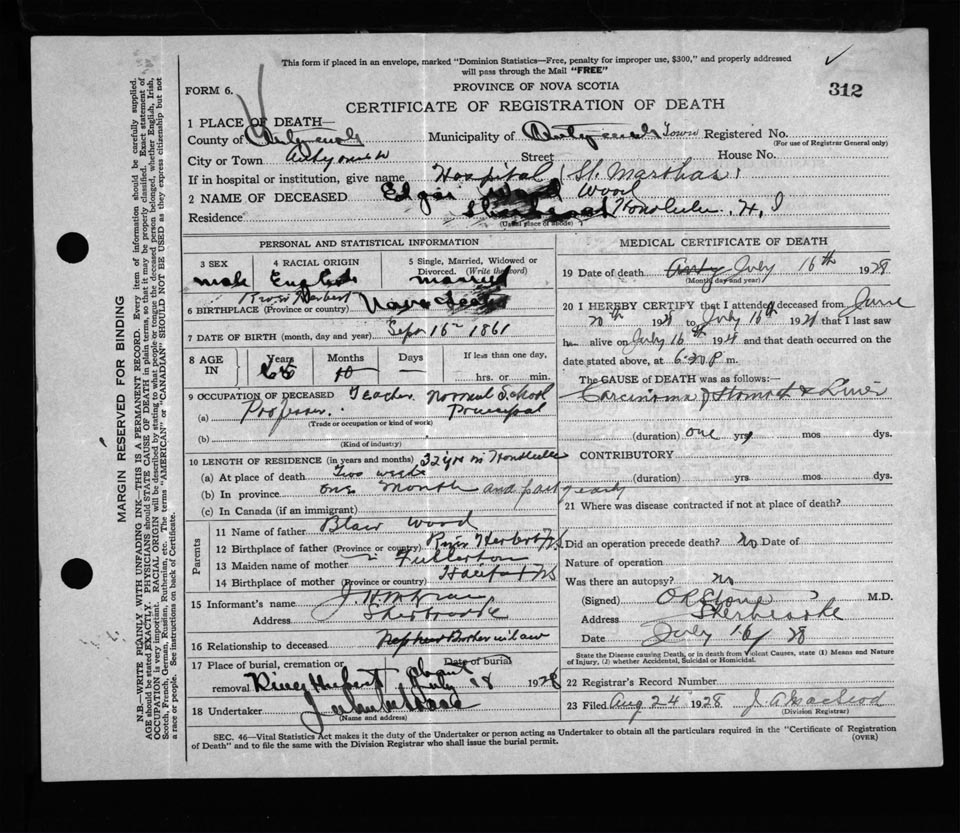 This form if placed in an envelope, marked "Dominion Statistics—Free, penalty for improper use, $300," and properly addressed
will pass through the Mail "FREE"
FORM 6.
PROVINCE OF NOVA SCOTIA
312
CERTIFICATE OF REGISTRATION OF DEATH
1 PLACE OF DEATH—
County of Municipality of Town Registered No.
(For use of Registrar General only)
City or Town Street House No.
If in hospital or institution, give name Hospital St. Marthas
2 NAME OF DECEASED Edgar Wood
Residence Honolulu H. I
(Usual place of abode)
PERSONAL AND STATISTICAL INFORMATION
3 SEX
male
4 RACIAL ORIGIN
English
5 Single, Married, Widowed or
Divorced. (Write the word)
married
6 BIRTHPLACE (Province or country) Nova Scotia
7 DATE OF BIRTH (month, day and year) Sept 16 1861
8 AGE
IN
Years
66
Months
10
Days
—
If less than one day,
hrs. or min.
9 OCCUPATION OF DECEASED Teacher Normal School
(a) Professor Principal
(Trade or occupation or kind of work)
(b)
(Kind of industry)
10 LENGTH OF RESIDENCE (in years and months) 32 yrs in Honolulu
(a) At place of death Two weeks
(b) In province one month and part yearly
(c) In Canada (if an immigrant)
Parents
11 Name of father Blair Wood
12 Birthplace of father (Province or country) River Herbert N.S
13 Maiden name of mother Fullerton
14 Birthplace of mother (Province or country) Halifax N.S
15 Informant's name
Address Sherbrooke
16 Relationship to deceased Brother in law
17 Place of burial, cremation or
removal River Hebert
Date of burial
about
July 18 1928
18 Undertaker
(Name and address)
MEDICAL CERTIFICATE OF DEATH
19 Date of death July 16th 1928
(Month, day and year)
20 I HEREBY CERTIFY that I attended deceased from June
20th 1928 to July 16th 1928 that I last saw
h alive on July 16th 1928 and that death occurred on the
date stated above, at 6.30 P m.
The CAUSE OF DEATH was as follows:—
Carcinoma of Stomach & Liver
(duration) one yrs. mos. dys.
CONTRIBUTORY
(duration) yrs. mos. dys.
21 Where was disease contracted if not at place of death?
Did an operation precede death? no Date of
Nature of operation
Was there an autopsy? no
(Signed) M.D.
Address Sherbrooke
Date July 16 / 28
State the Disease causing Death, or in death from Violent Causes, state (1) Means and Nature
of Injury, (2) whether Accidental, Suicidal or Homicidal.
22 Registrar's Record Number
23 Filed Aug 24 1928 J. A. MacLeod
(Division Registrar)
SEC. 46—Vital Statistics Act makes it the duty of the Undertaker or person acting as Undertaker to obtain all the particulars required in the "Certificate of Registration
of Death" and to file the same with the Division Registrar who shall issue the burial permit.
(OVER)
MARGIN RESERVED FOR BINDING
N.B.—WRITE PLAINLY WITH UNFADING INK—THIS IS A PERMANENT RECORD. Every item of information should be carefully supplied.
AGE should be stated EXACTLY. PHYSICIANS should STATE CAUSE OF DEATH in plain terms, so that it may be properly classified. Exact statement of
OCCUPATION is very important. RACIAL ORIGIN will be described by stating to what people or tongue the deceased person belonged, whether English, Irish,
Scotch, French, German, Russian, Ruthenian, etc. The terms "AMERICAN" or "CANADIAN" SHOULD NOT BE USED as they express citizenship but not
a race or people. See instructions on back of Certificate.